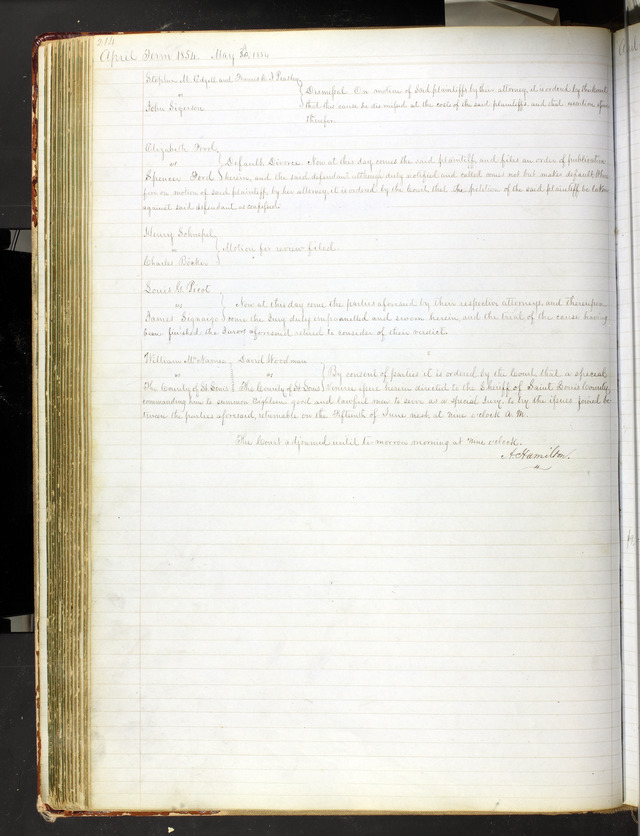 214
April Term 1854. May 30, 1854
Stephen M. Edgell and
vs
John Sigerson
Dismissal. On motion of said plaintiffs by their attorney, it is ordered by the Court
that this cause be dismissed at the costs of the said plaintiffs, and that execution issue
therefor.
Elizabeth Ford,
vs
Spencer Ford
Default Divorce. Now at this day comes the said plaintiff and files an order of publication
herein, and the said defendant although duly notified and called comes not but makes default. There
fore on motion of said plaintiff, by her attorney, it is ordered by the Court, that the petition of the said plaintiff be taken
against said defendant as confessed.
Henry
vs
Charles
Motion for review filed.
Louis G. Picot
vs
James
Now at this day come the parties aforesaid by their respective attorneys, and thereupon
come the Jury duly empannelled and sworn herein, and the trial of the cause having
been finished the Jurors aforesaid retired to consider of their verdict.
William
vs
The County of St. Louis
David Woodman
vs
The County of St Louis
By consent of parties it is ordered by the Court, that a special
venire issue herein directed to the Sheriff of Saint Louis County,
commanding him to summon Eighteen good and lawful men to serve as a special Jury to try the issues joined be
tween the parties aforesaid, returnable on the Fifteenth of June next, at nine o'clock A.M.
The Court adjourned until to-morrow morning at nine o'clock.
A. Hamilton.